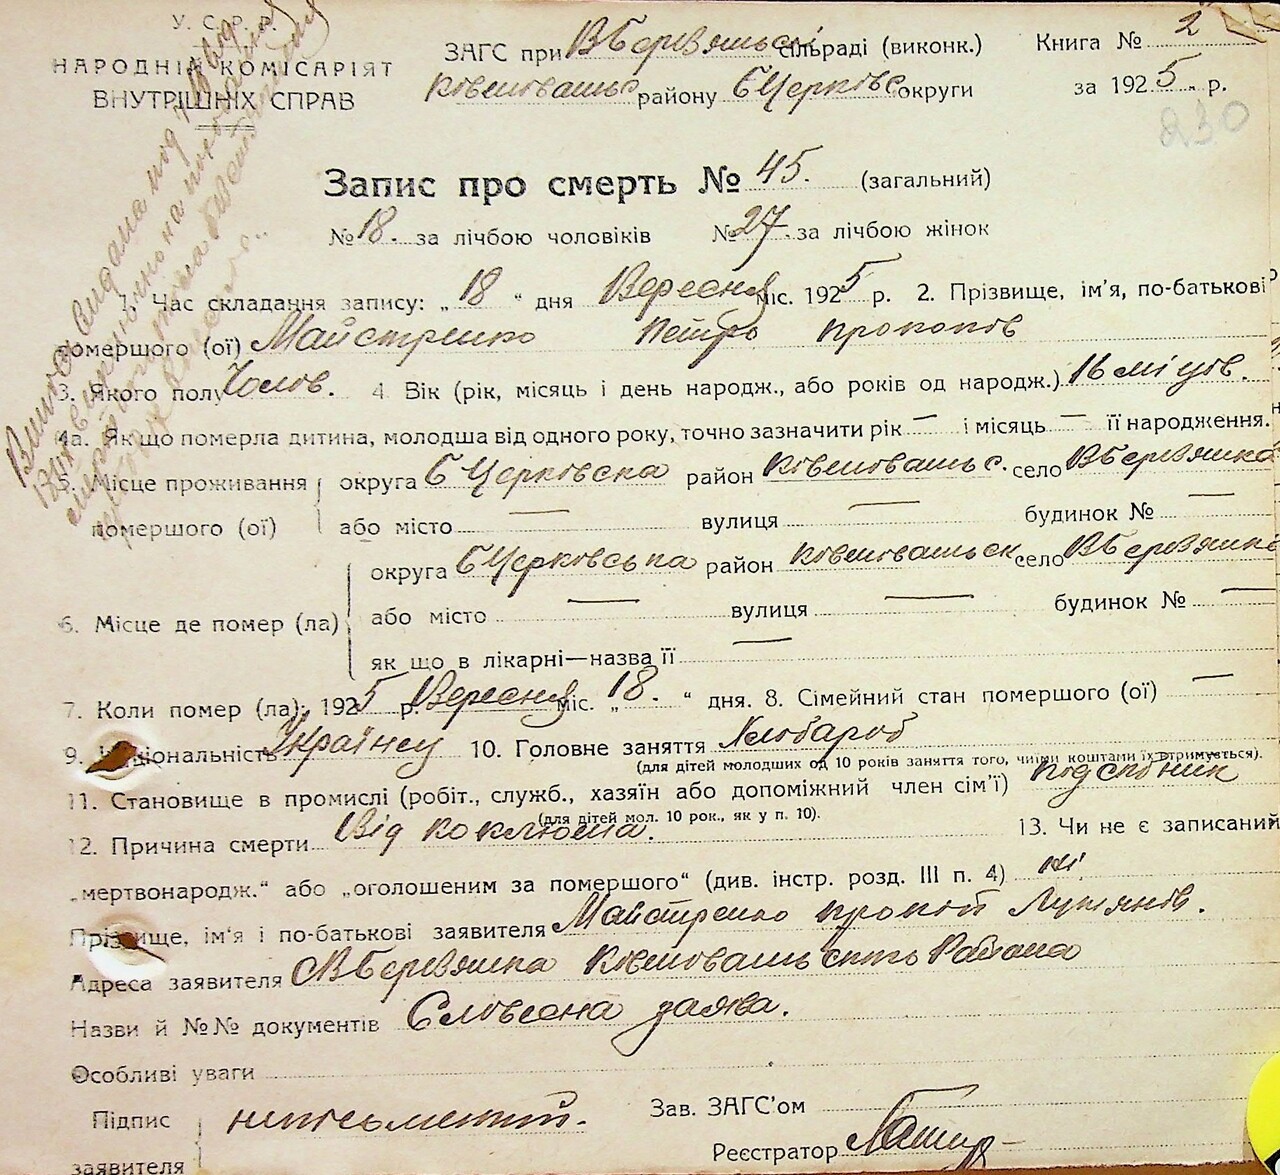 У. С. Р. Р.
НАРОДНІЙ КОМІСАРІЯТ
ВНУТРІШНІХ СПРАВ
ЗАГС при ВБеревянськ сільраді (виконк.)
Ковшовацьс району БЦерковс округи
Книга № 2
за 1925 р.
230
Запис про смерть № 45. (загальний)
№ 18. за лічбою чоловіків № 27. за лічбою жінок
1. Час складання запису: „18" дня Вересня міс. 1925 р. 2. Прізвище, ім'я, по-батькові
помершого (ої) Майстренко Петро Прокопів
3. Якого полу Чолов. 4. Вік (рік, місяць і день народж., або років од народж.) 16 місуов.
4а. Якщо померла дитина, молодша від одного року, точно зазначити рік — і місяць — її народження.
5. Місце проживання помершого (ої)
округа БЦерковска район Ковшовацьс. село ВБеревянка
або місто — вулиця — будинок № —
6. Місце де помер (ла)
округа БЦерковська район Ковшовацьск село ВБеревянка
або місто — вулиця — будинок № —
як що в лікарні—назва її —
7. Коли помер (ла): 1925 р. Вересня міс. „18." дня. 8. Сімейний стан помершого (ої) —
9. Національність Українец 10. Головне заняття Хлобароб
(для дітей молодших од 10 років заняття того, чиїми коштами їх утримується).
11. Становище в промислі (робіт., служб., хазяїн або допоміжний член сім'ї) подсобник
(для дітей мол. 10 рок., як у п. 10).
12. Причина смерти Від коклюша. 13. Чи не є записаний
„мертвонародж." або „оголошеним за помершого" (див. інстр. розд. III п. 4) ні
Прізвище, ім'я і по-батькові заявителя Майстренко Прокоп Лукянів.
Адреса заявителя СВБеревянка Ковшовацького Района
Назви й №№ документів Словесна заява.
Особливі уваги
Підпис заявителя неписьменний.
Зав. ЗАГС'ом
Реєстратор